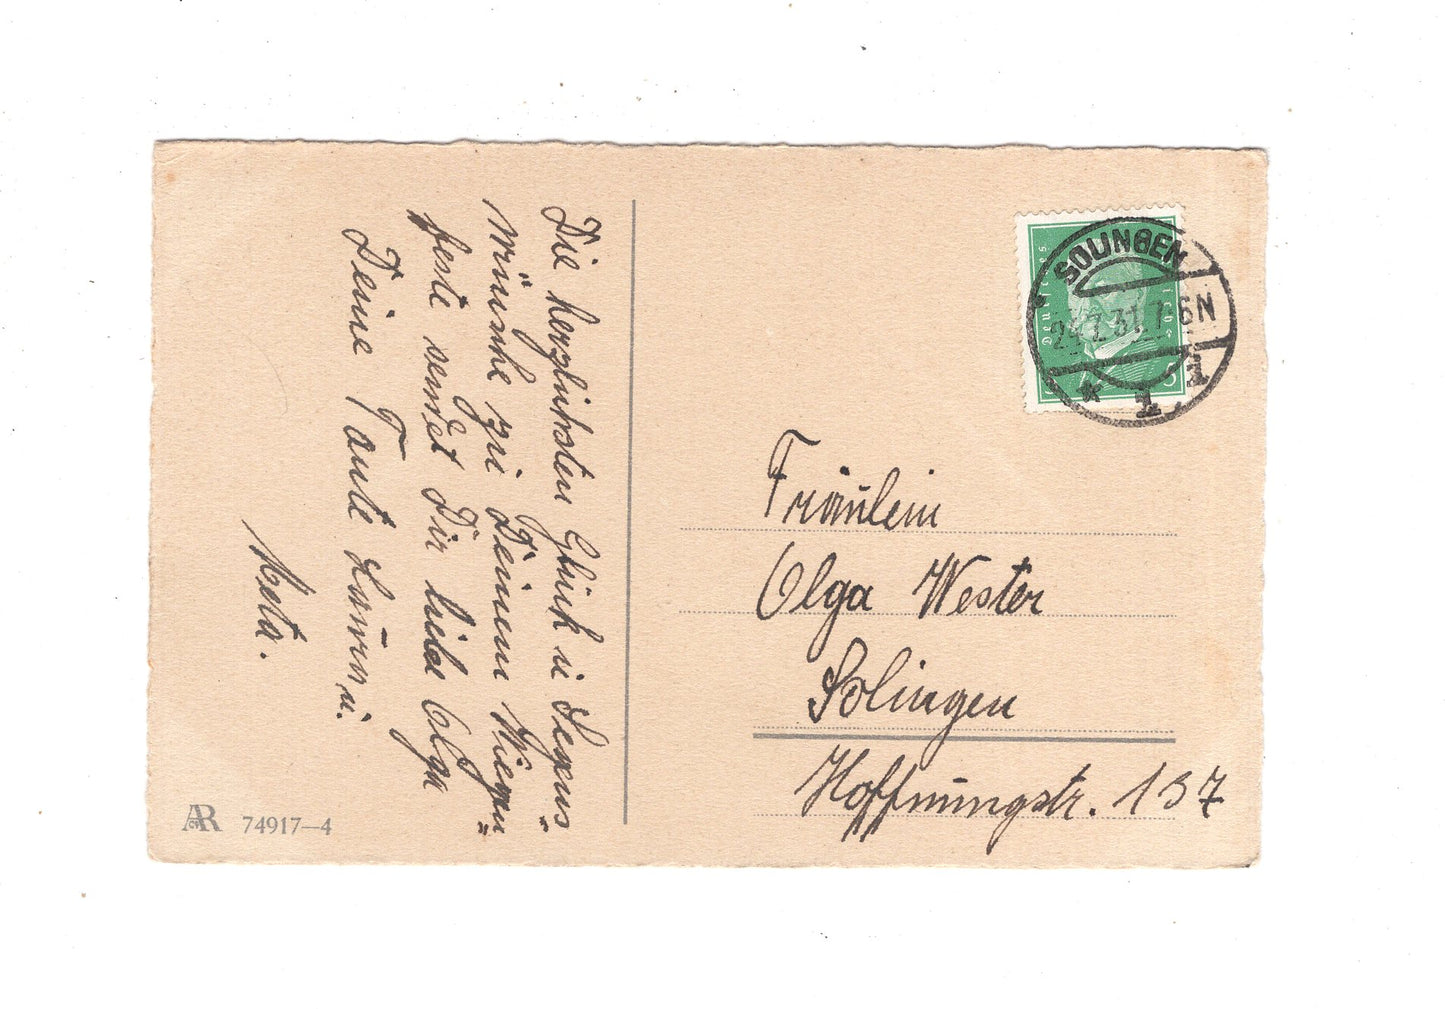 Die herzlichsten Glück u Segens-
wünsche zu Deinem Wiegen=
feste sendet Dir liebe Olga
Deine Tante Laura u.
Meta.
AR 74917—4
Deutsches Reich
SOLINGEN
7.31. 7 6N
* 1 1
Fräulein
Olga Wester
Solingen
Hoffnungstr. 137